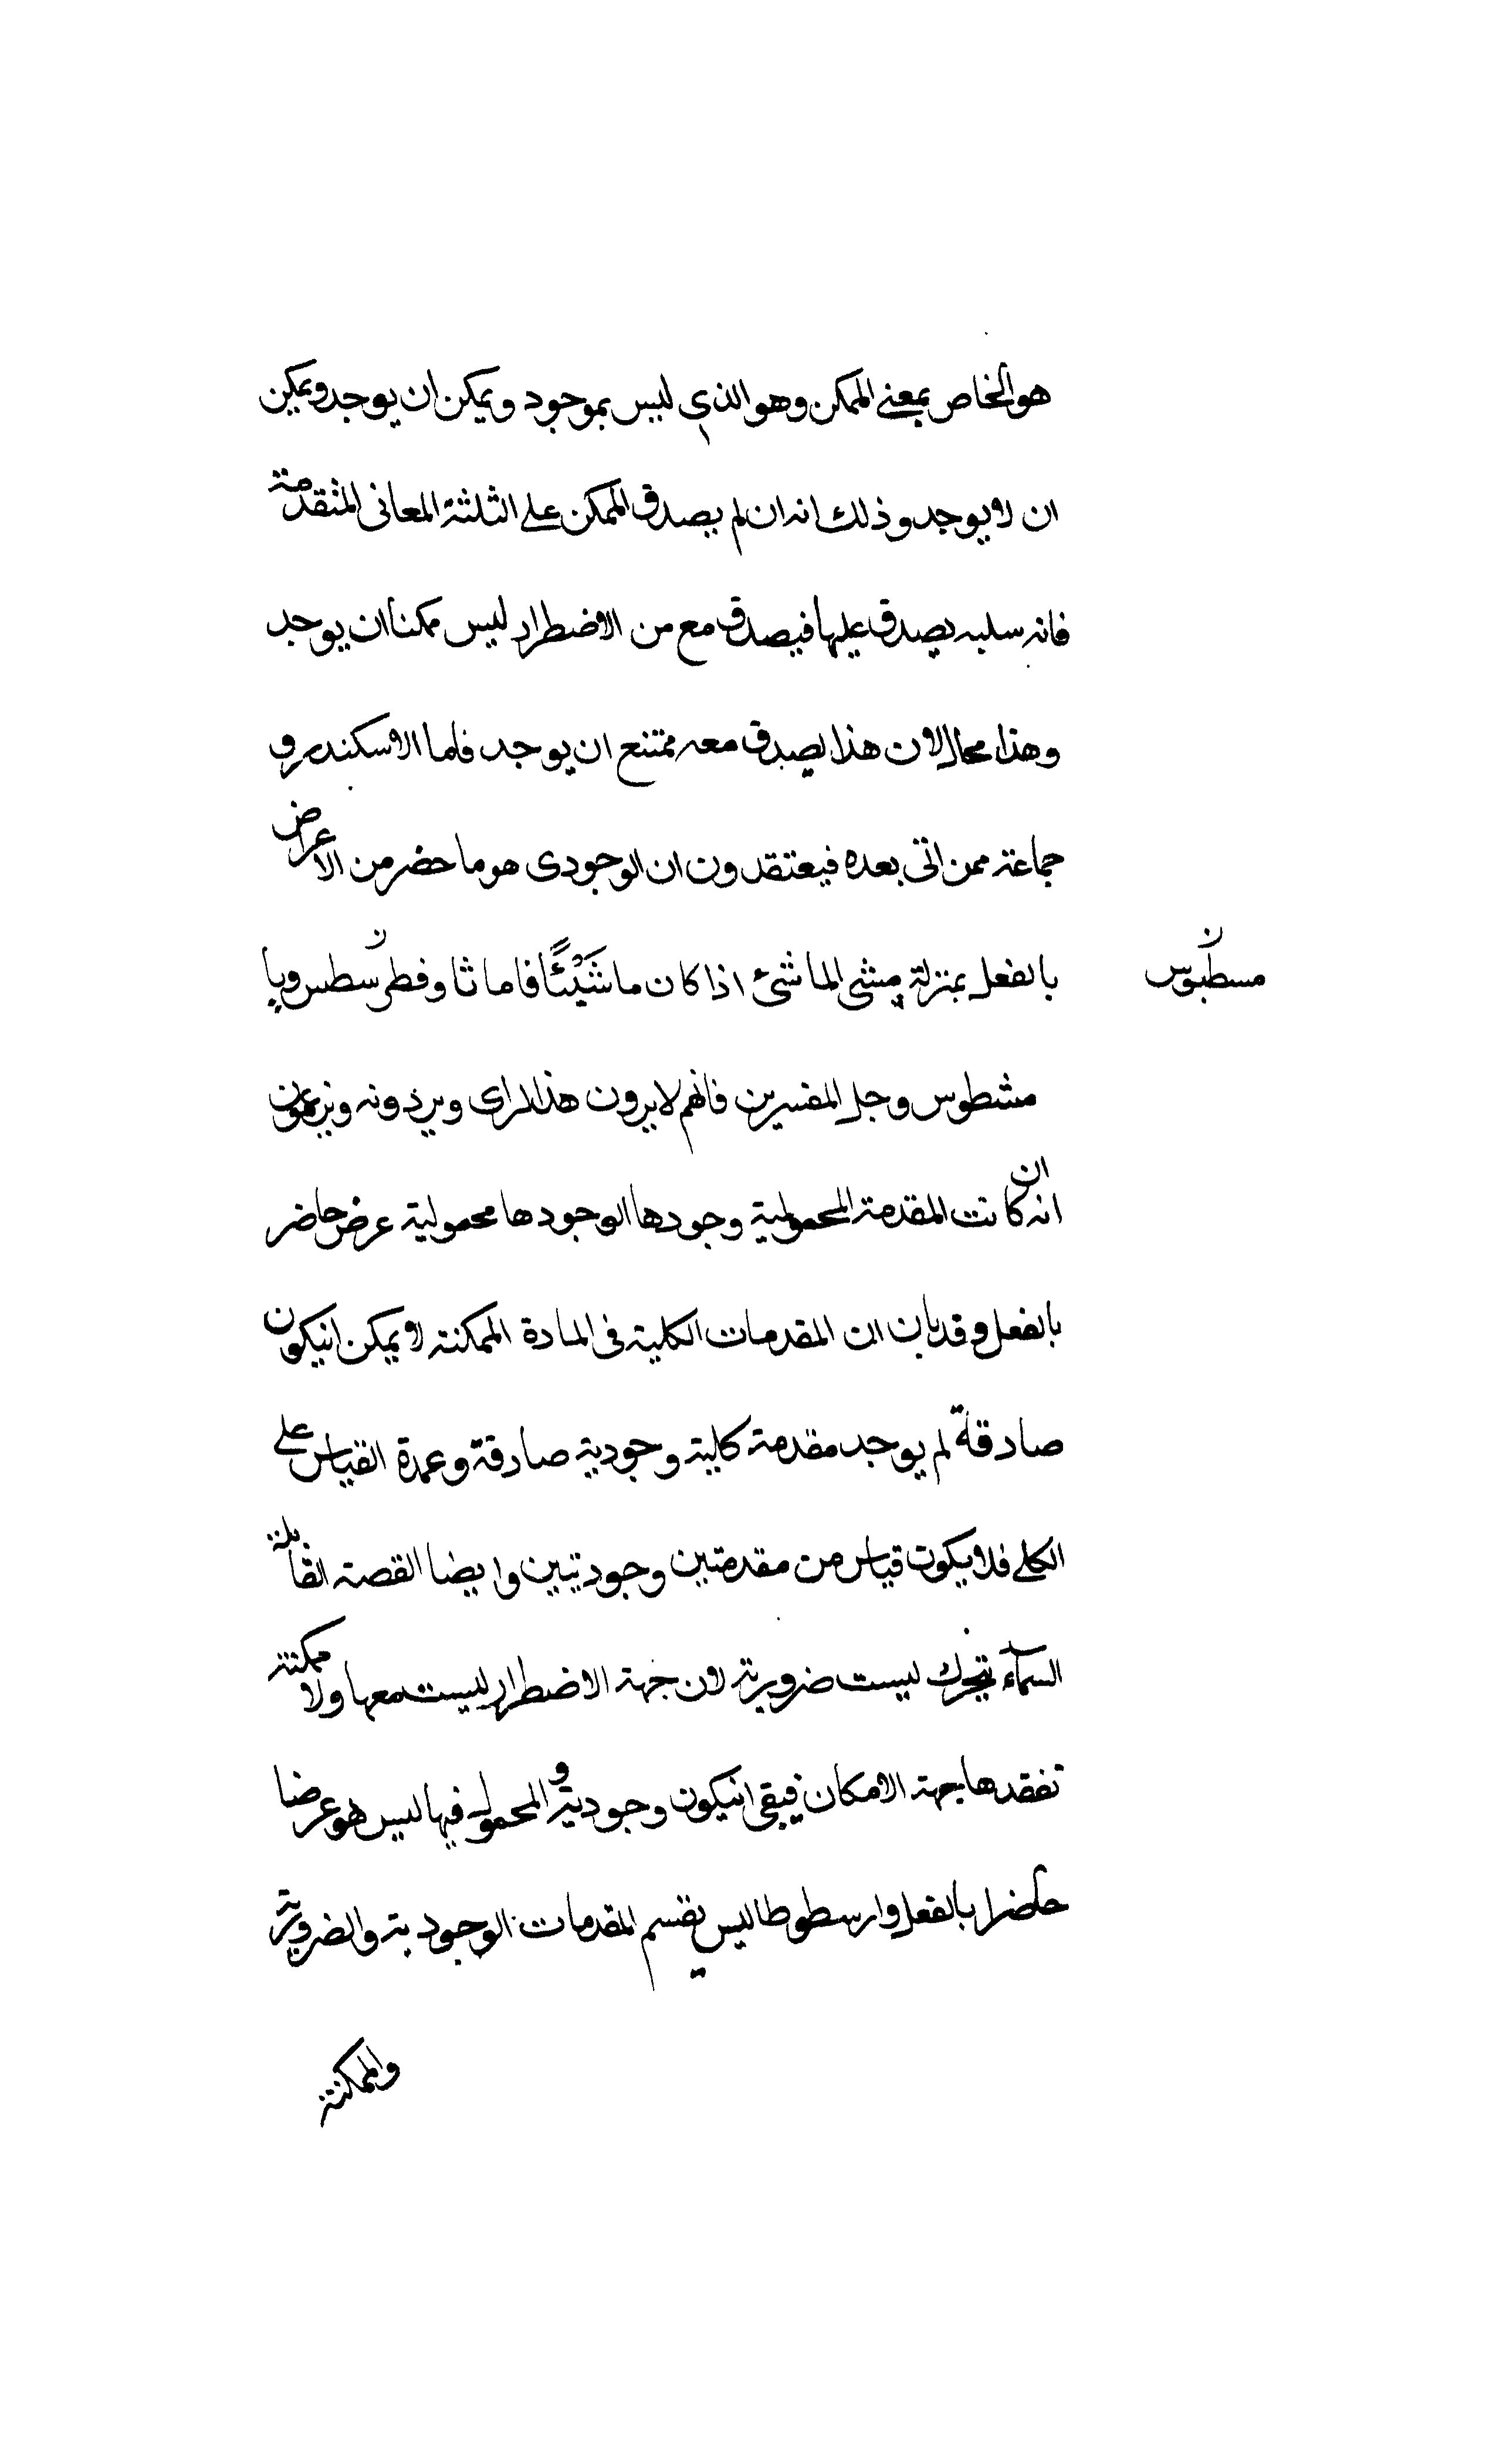 هو الخاص بمعنى الممكن وهو الذى ليس بموجود ويمكن ان يوجد ويمكن
ان لا يوجد وذلك انه ان لم يصدق الممكن على الثلثة المعانى المتقدمة
فانه سلبه يصدق عليها فيصدق مع من الاضطرار ليس ممكنا ان يوجد
وهذا محال لان هذا يصدق معه ممتنع ان يوجد فاما الاسكندر و
جماعة ممن اتى بعده فيعتقدون ان الوجودى هو ما حضر من الاعراض
بالفعل بمنزلة مشى الماشئ اذا كان ماشَيْئًا فاما ثاوفطرسطس وبا
مسطبوس ن
مشطوس وجل المفسرين فانهم لا يرون هذا الراى ويردونه ويزعمون
انه ان كانت المقدمة المحمولية وجودها الوجودها محمولية عرض حاضر
بالفعل وقد بان ان المقدمات الكلية فى المادة الممكنة لا يمكن انيكون
صادقة لم يوجد مقدمة كلية وجودية صادقة وعمدة القياس على
الكلى فلا يكون قياس من مقدمتين وجوديتين وايضا القصة القايلة
السمآء تتحرك ليست ضرورية لان جهة الاضطرار ليست معها ولا ممكنة
تفقدها جهة الامكان فيبقى انيكون وجودية و المحمول فيها ليس هو عرضا
حاضرا بالفعل وارسطوطاليس يقسم المقدمات الوجودية والضرورية
والممكنة